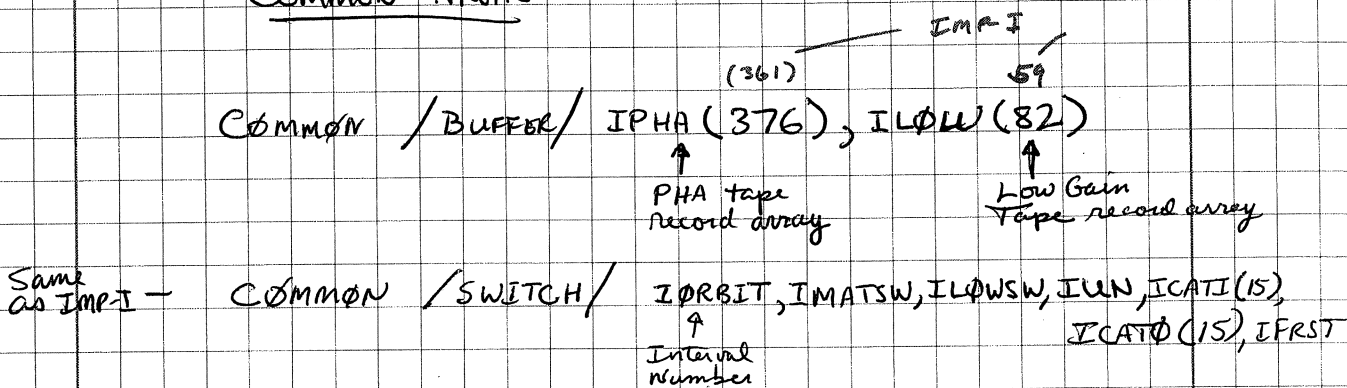 IMP-I
(361) 59
CØMMØN /BUFFER/ IPHA(376), ILØW(82)
PHA tape Low Gain
record array Tape record array
Same
as IMP-I — CØMMØN /SWITCH/ IØRBIT, IMATSW, ILØWSW, ILUN, ICATI(15),
ICATØ(15), IFRST
Interval
Number